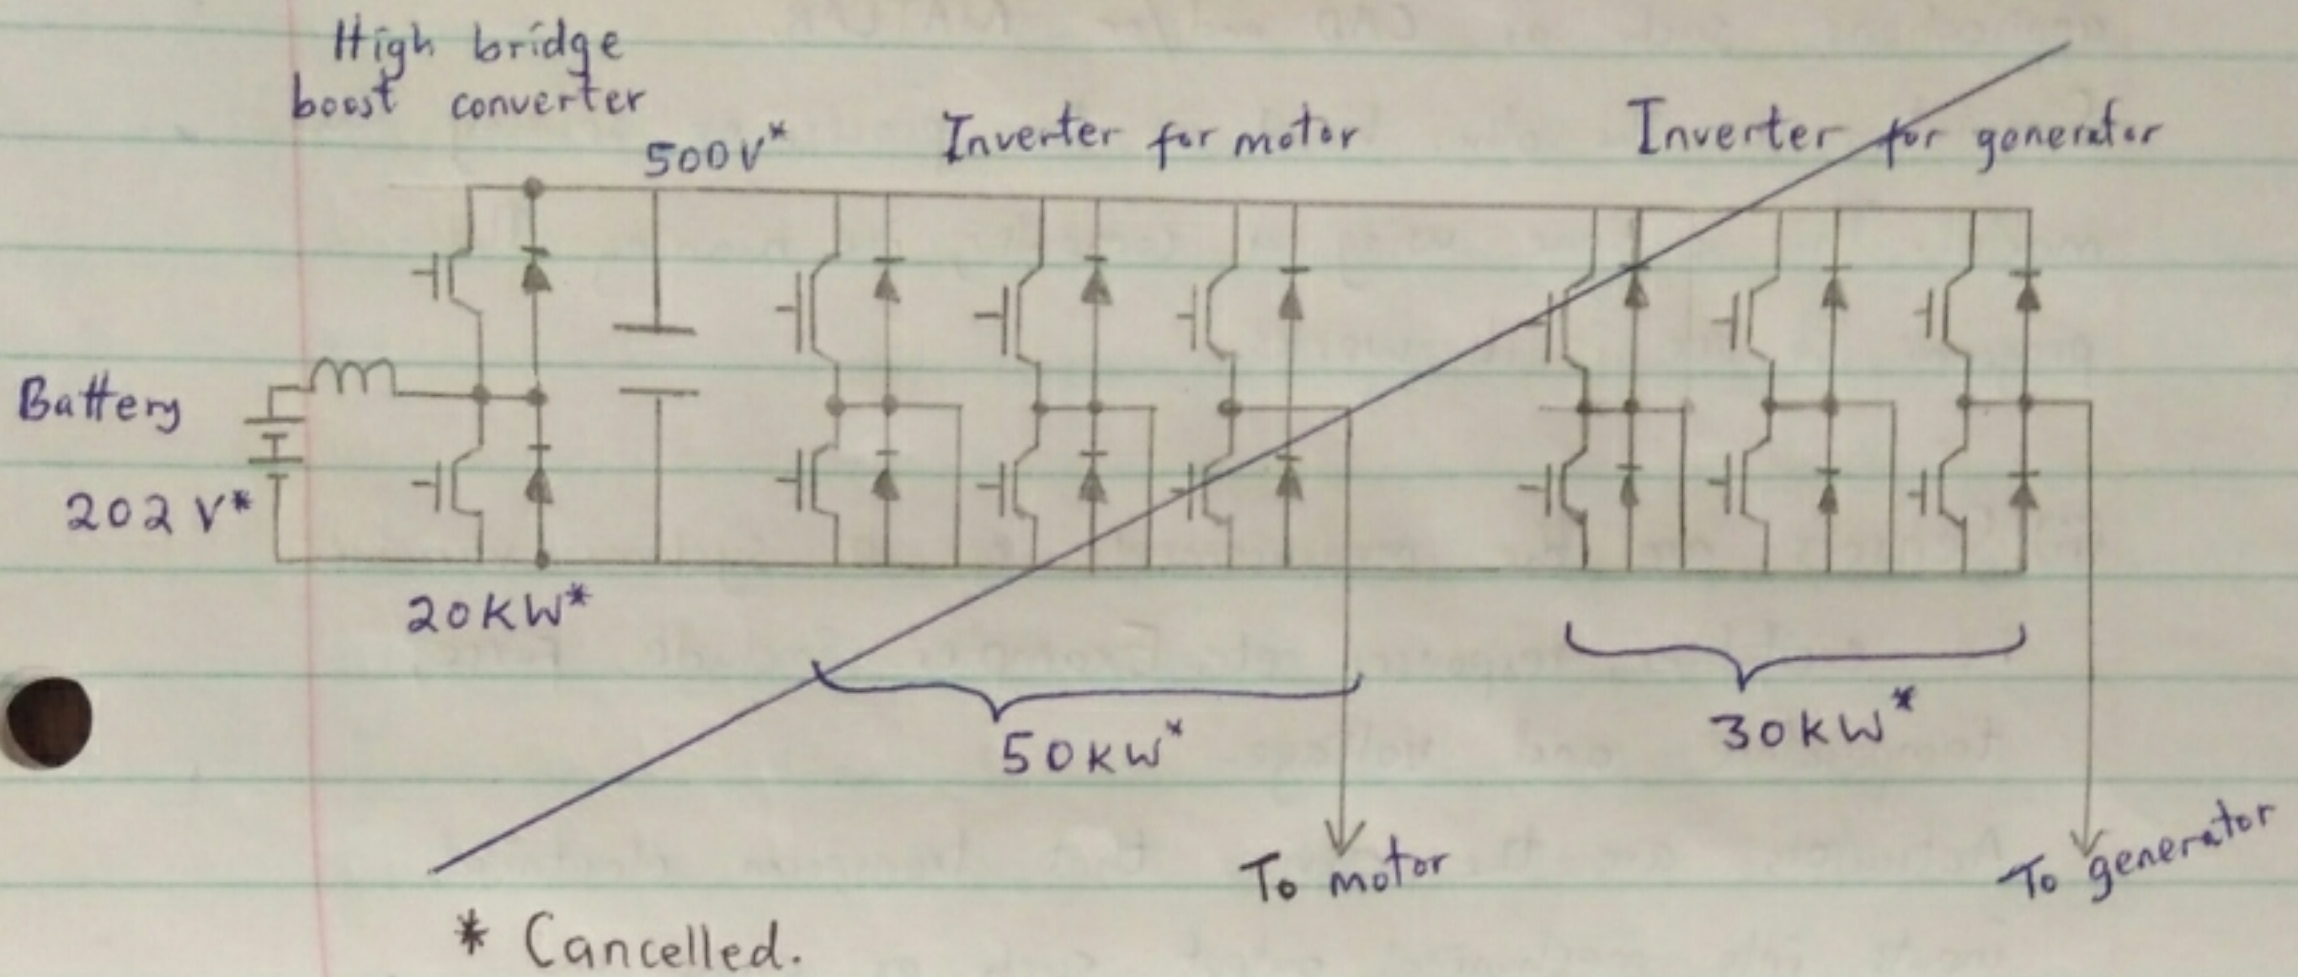 High bridge
boost converter
500V*
Inverter for motor
Inverter for generator
Battery
202 V*
20KW*
50KW*
30KW*
To motor
To generator
* Cancelled.